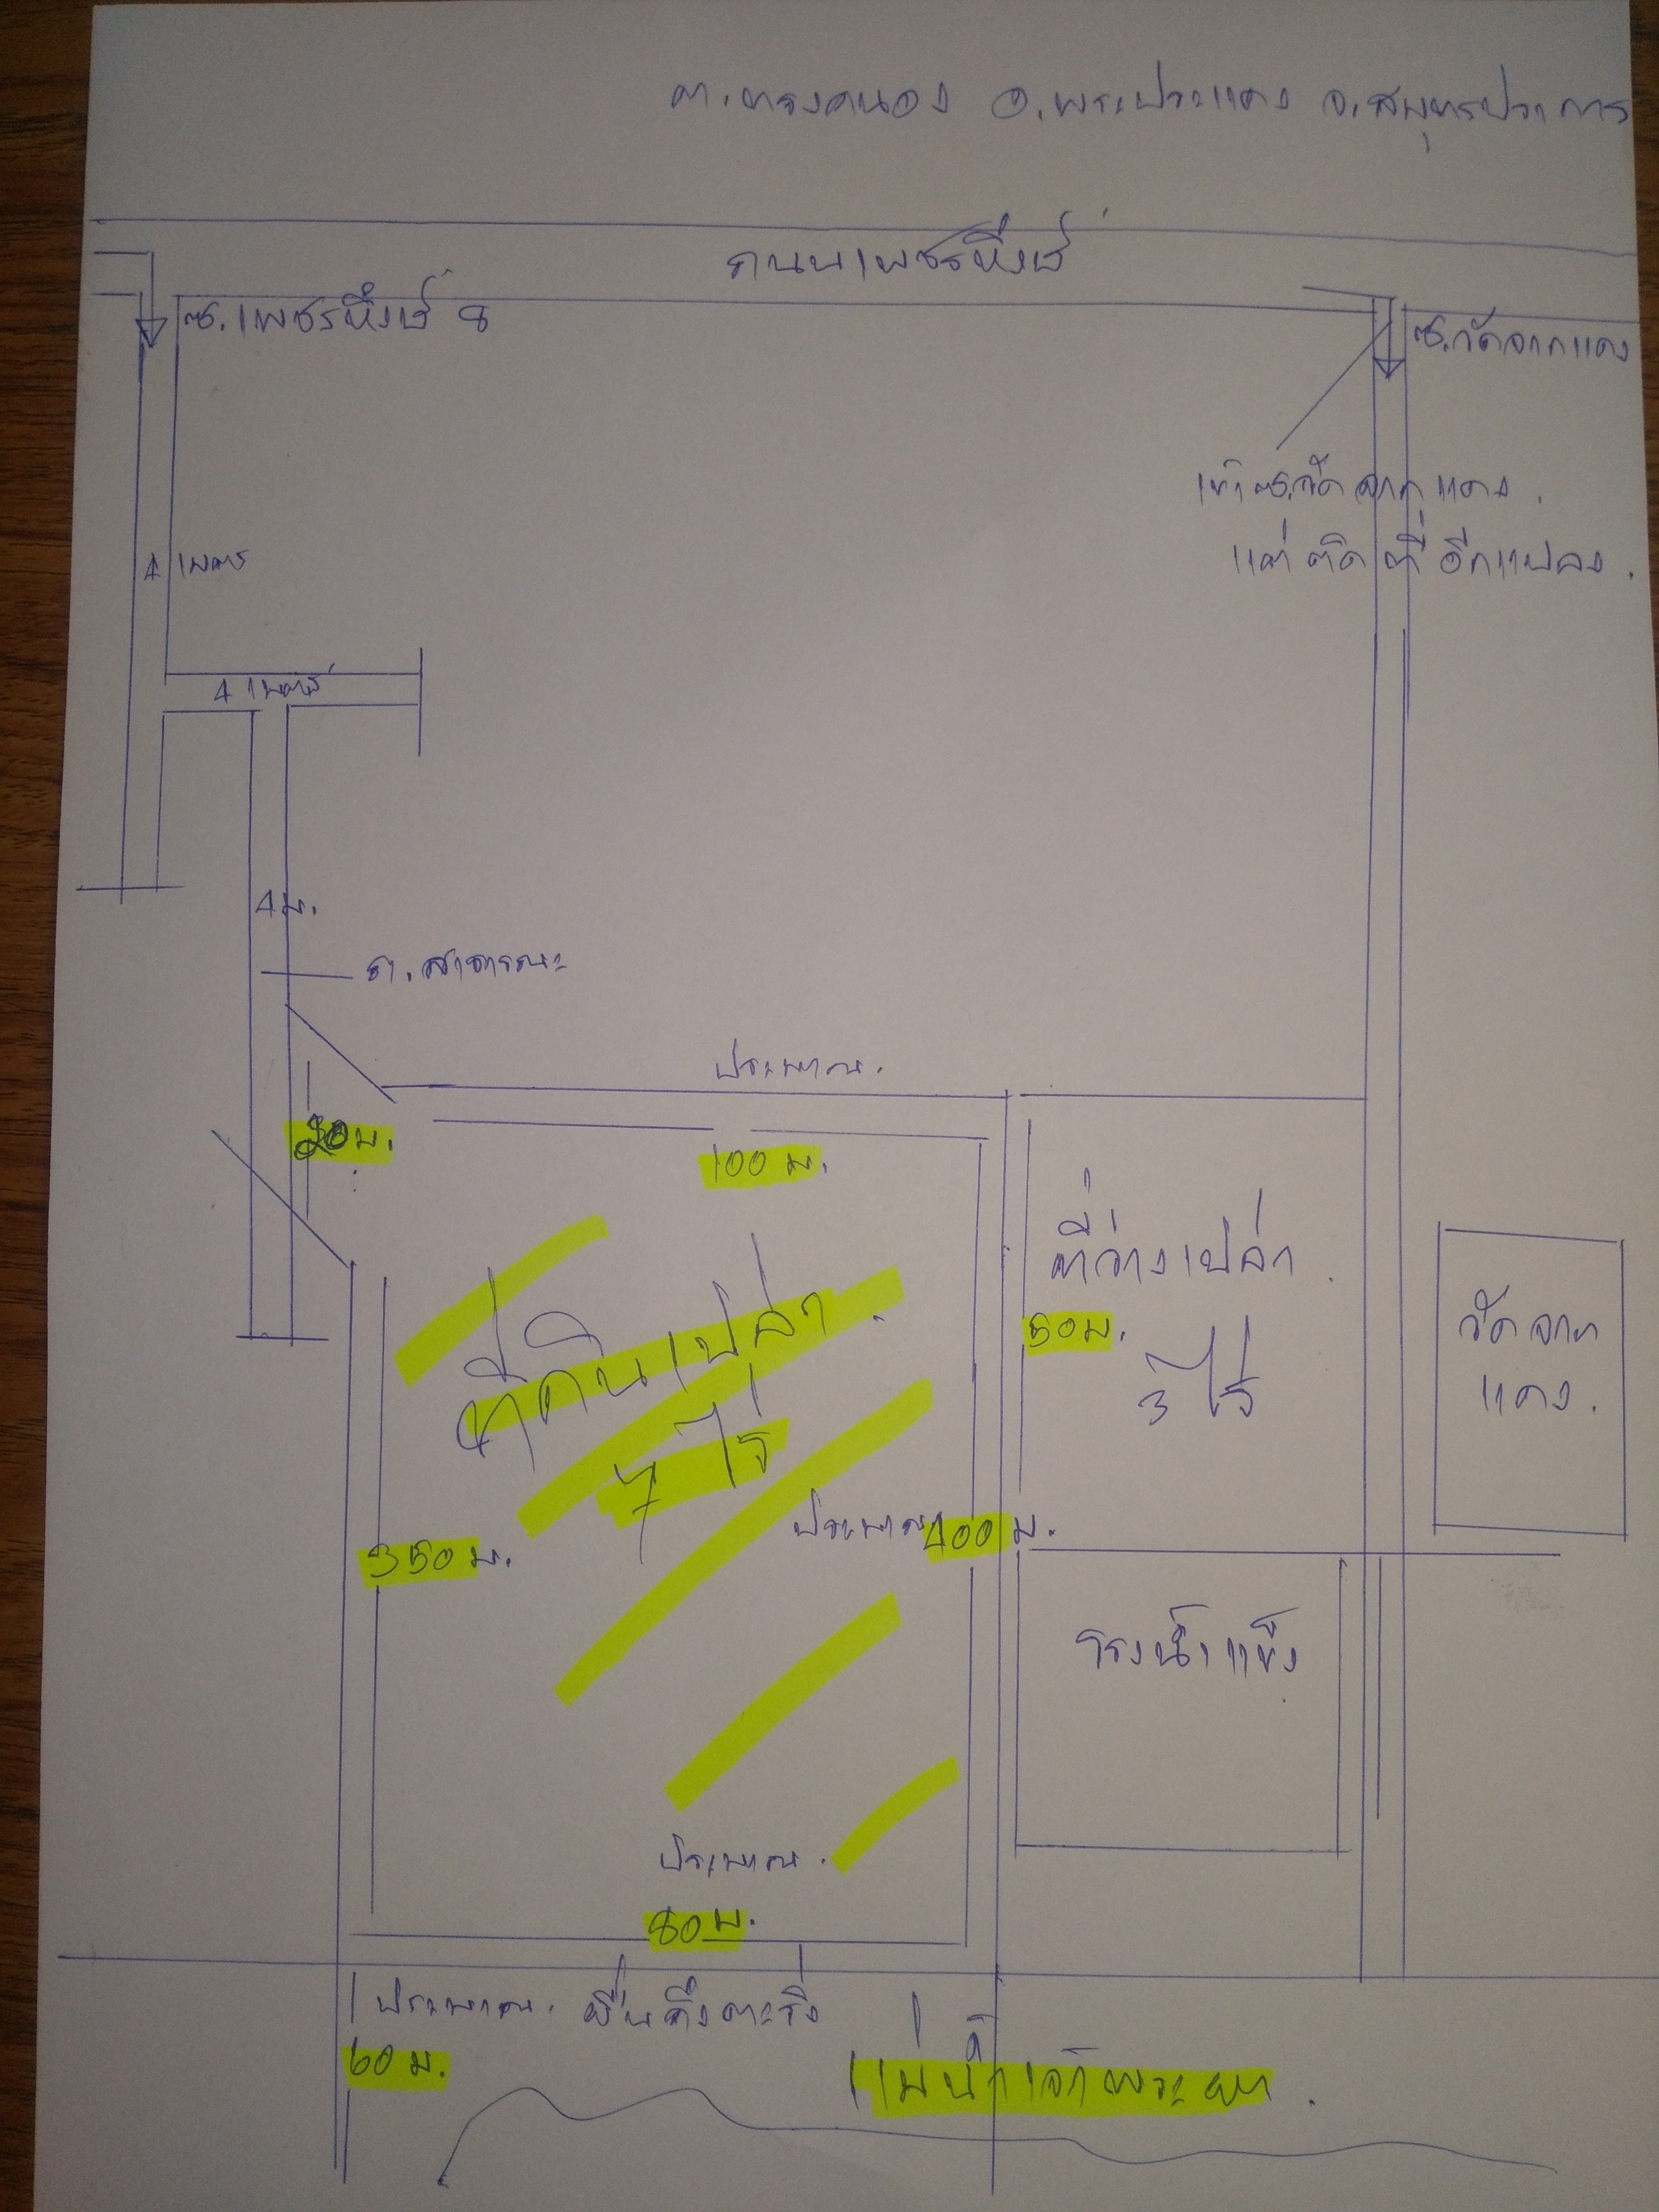 ต.ทรงคนอง อ.พระประแดง จ.สมุทรปราการ
ถนนเพชรหึงษ์
ซ.เพชรหึงษ์ 8
ซ.วัดจากแดง
เข้าซ.วัดจากแดง.
แต่ติดที่อีกแปลง.
4 เมตร
4 เมตร์
4 ม.
ถ.สาธารณะ
ประมาณ.
20 ม.
100 ม.
ที่ว่างเปล่า.
50 ม.
3 ไร่
วัดจาก
แดง.
ที่ดินเปล่า.
7 ไร่
ประมาณ 400 ม.
350 ม.
โรงน้ำแข็ง
ประมาณ.
80 ม.
ประมาณ. ผืนถึงตะริ่ง
60 ม.
แม่น้ำเจ้าพระยา.